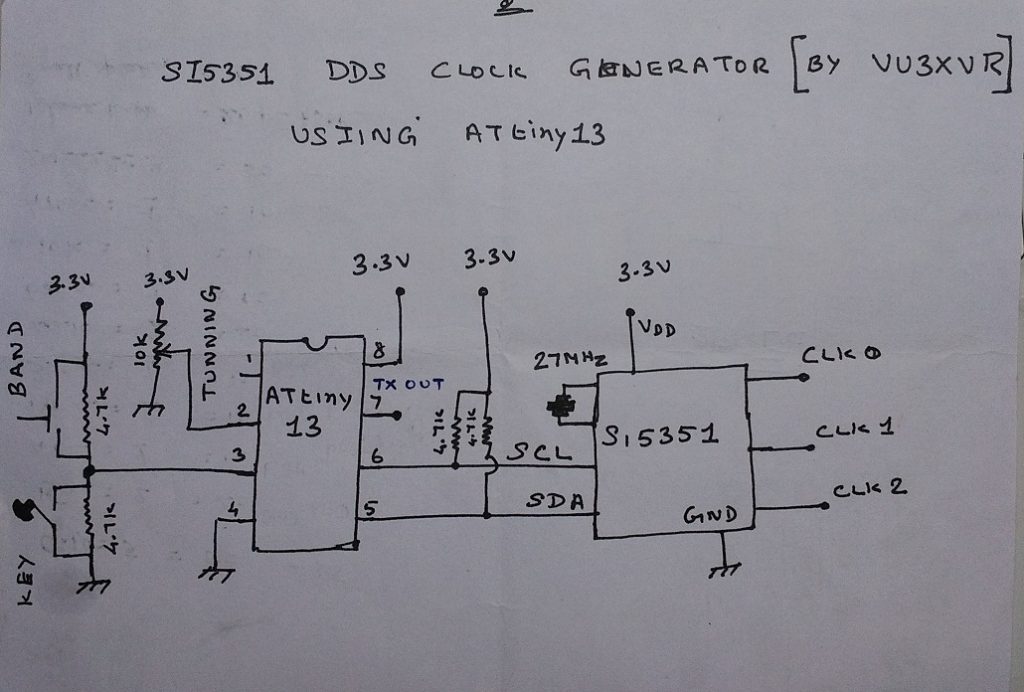 SI5351 DDS CLOCK GENERATOR [BY VU3XVR]
USIING ATtiny13
3.3V
3.3V
3.3V
3.3V
3.3V
BAND
4.7K
10K
TUNNING
1
2
3
4
ATtiny
13
8
TX OUT
7
6
5
4.7K
4.7K
SCL
SDA
27MHz
VDD
Si5351
GND
CLK 0
CLK 1
CLK 2
KEY
4.7K